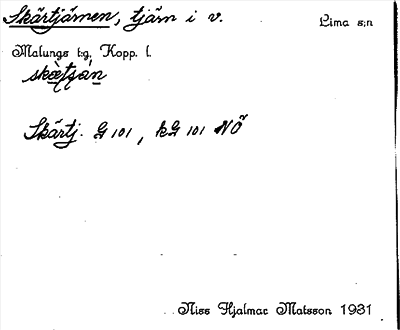 Skärtjärnen, tjärn i v. Lima s:n
Malungs t:g, Kopp. l.
skætsan
Skärtj. G 101, kG 101 NÖ
Nils Hjalmar Matsson 1931